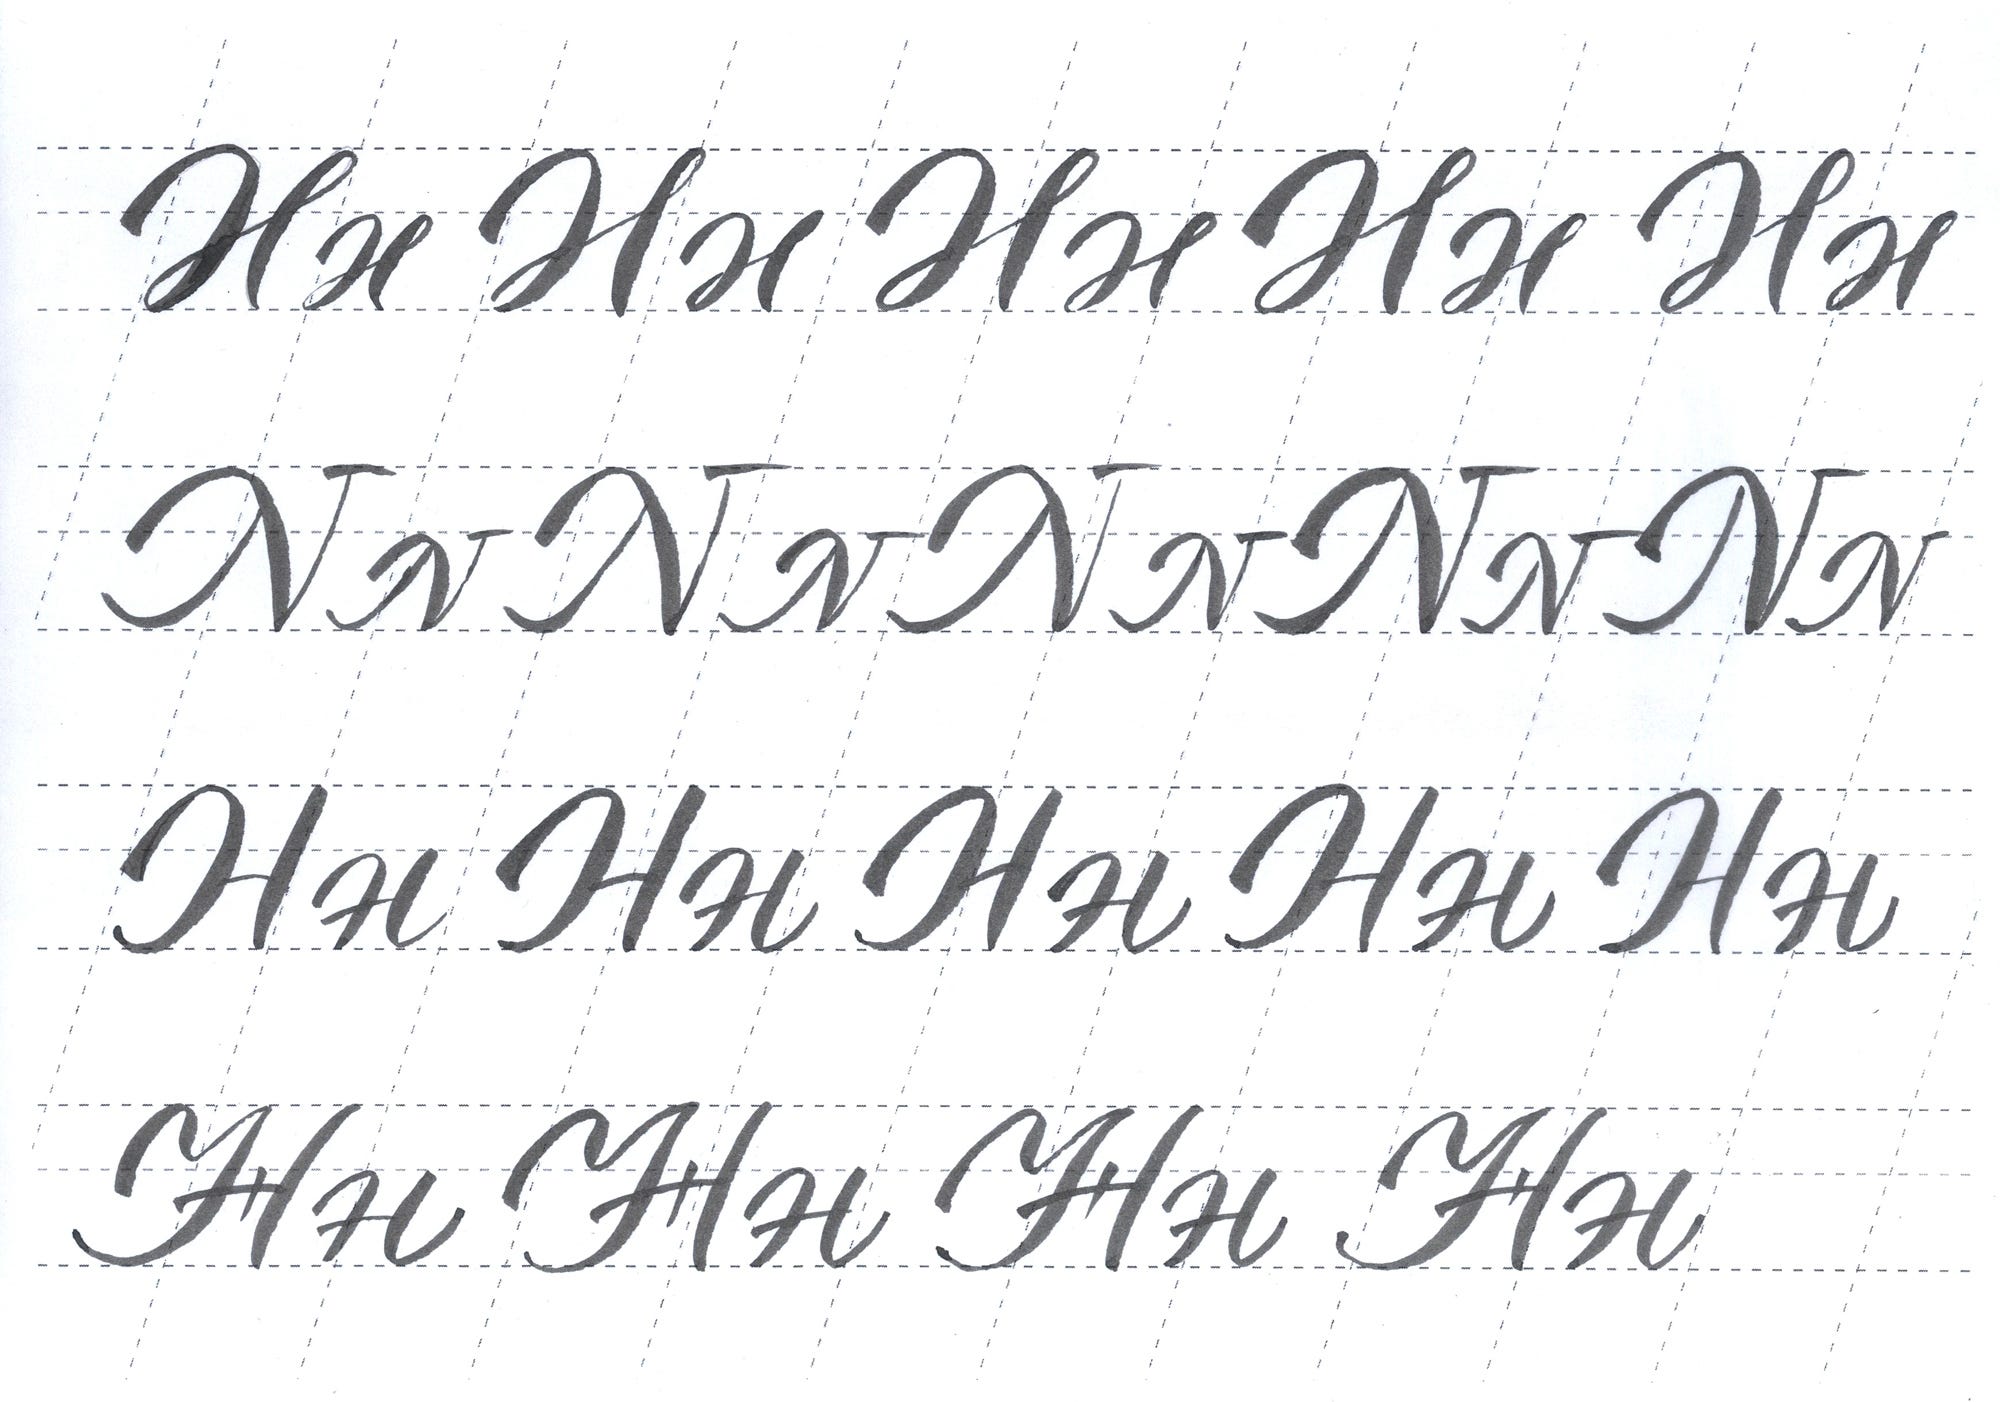 Нн Нн Нн Нн Нн
Nn Nn Nn Nn Nn
Нн Нн Нн Нн Нн
Нн Нн Нн Нн